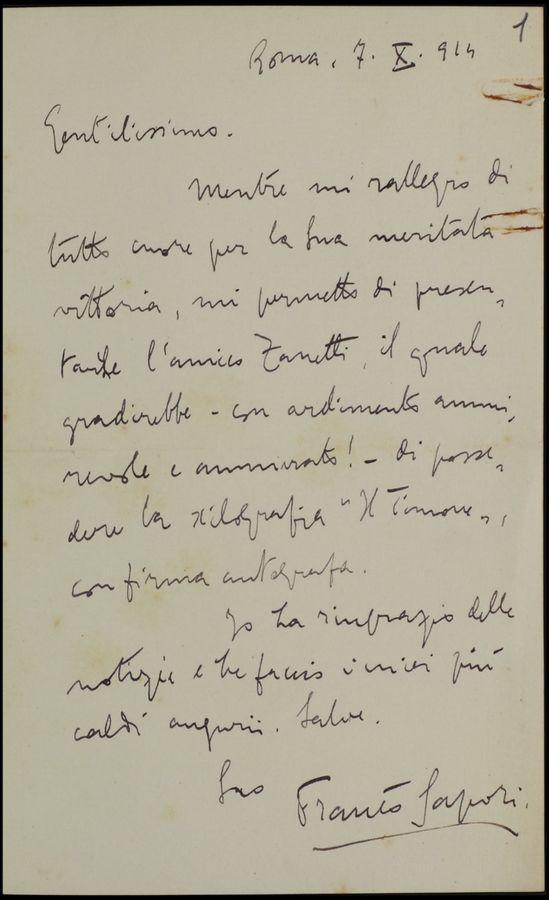 1
Roma, 7. X. 914
Gentilissimo.
Mentre mi rallegro di
tutto cuore per la Sua meritata
vittoria, mi permetto di presen„
tarLe l'amico Zanetti, il quale
gradirebbe - con ardimento ammi„
revole e ammirato! - di posse„
dere la xilografia "Il Timone",
con firma autografa.
Io La ringrazio delle
notizie e Le faccio i miei più
caldi augurii. Salve.
Suo Francesco Sapori.